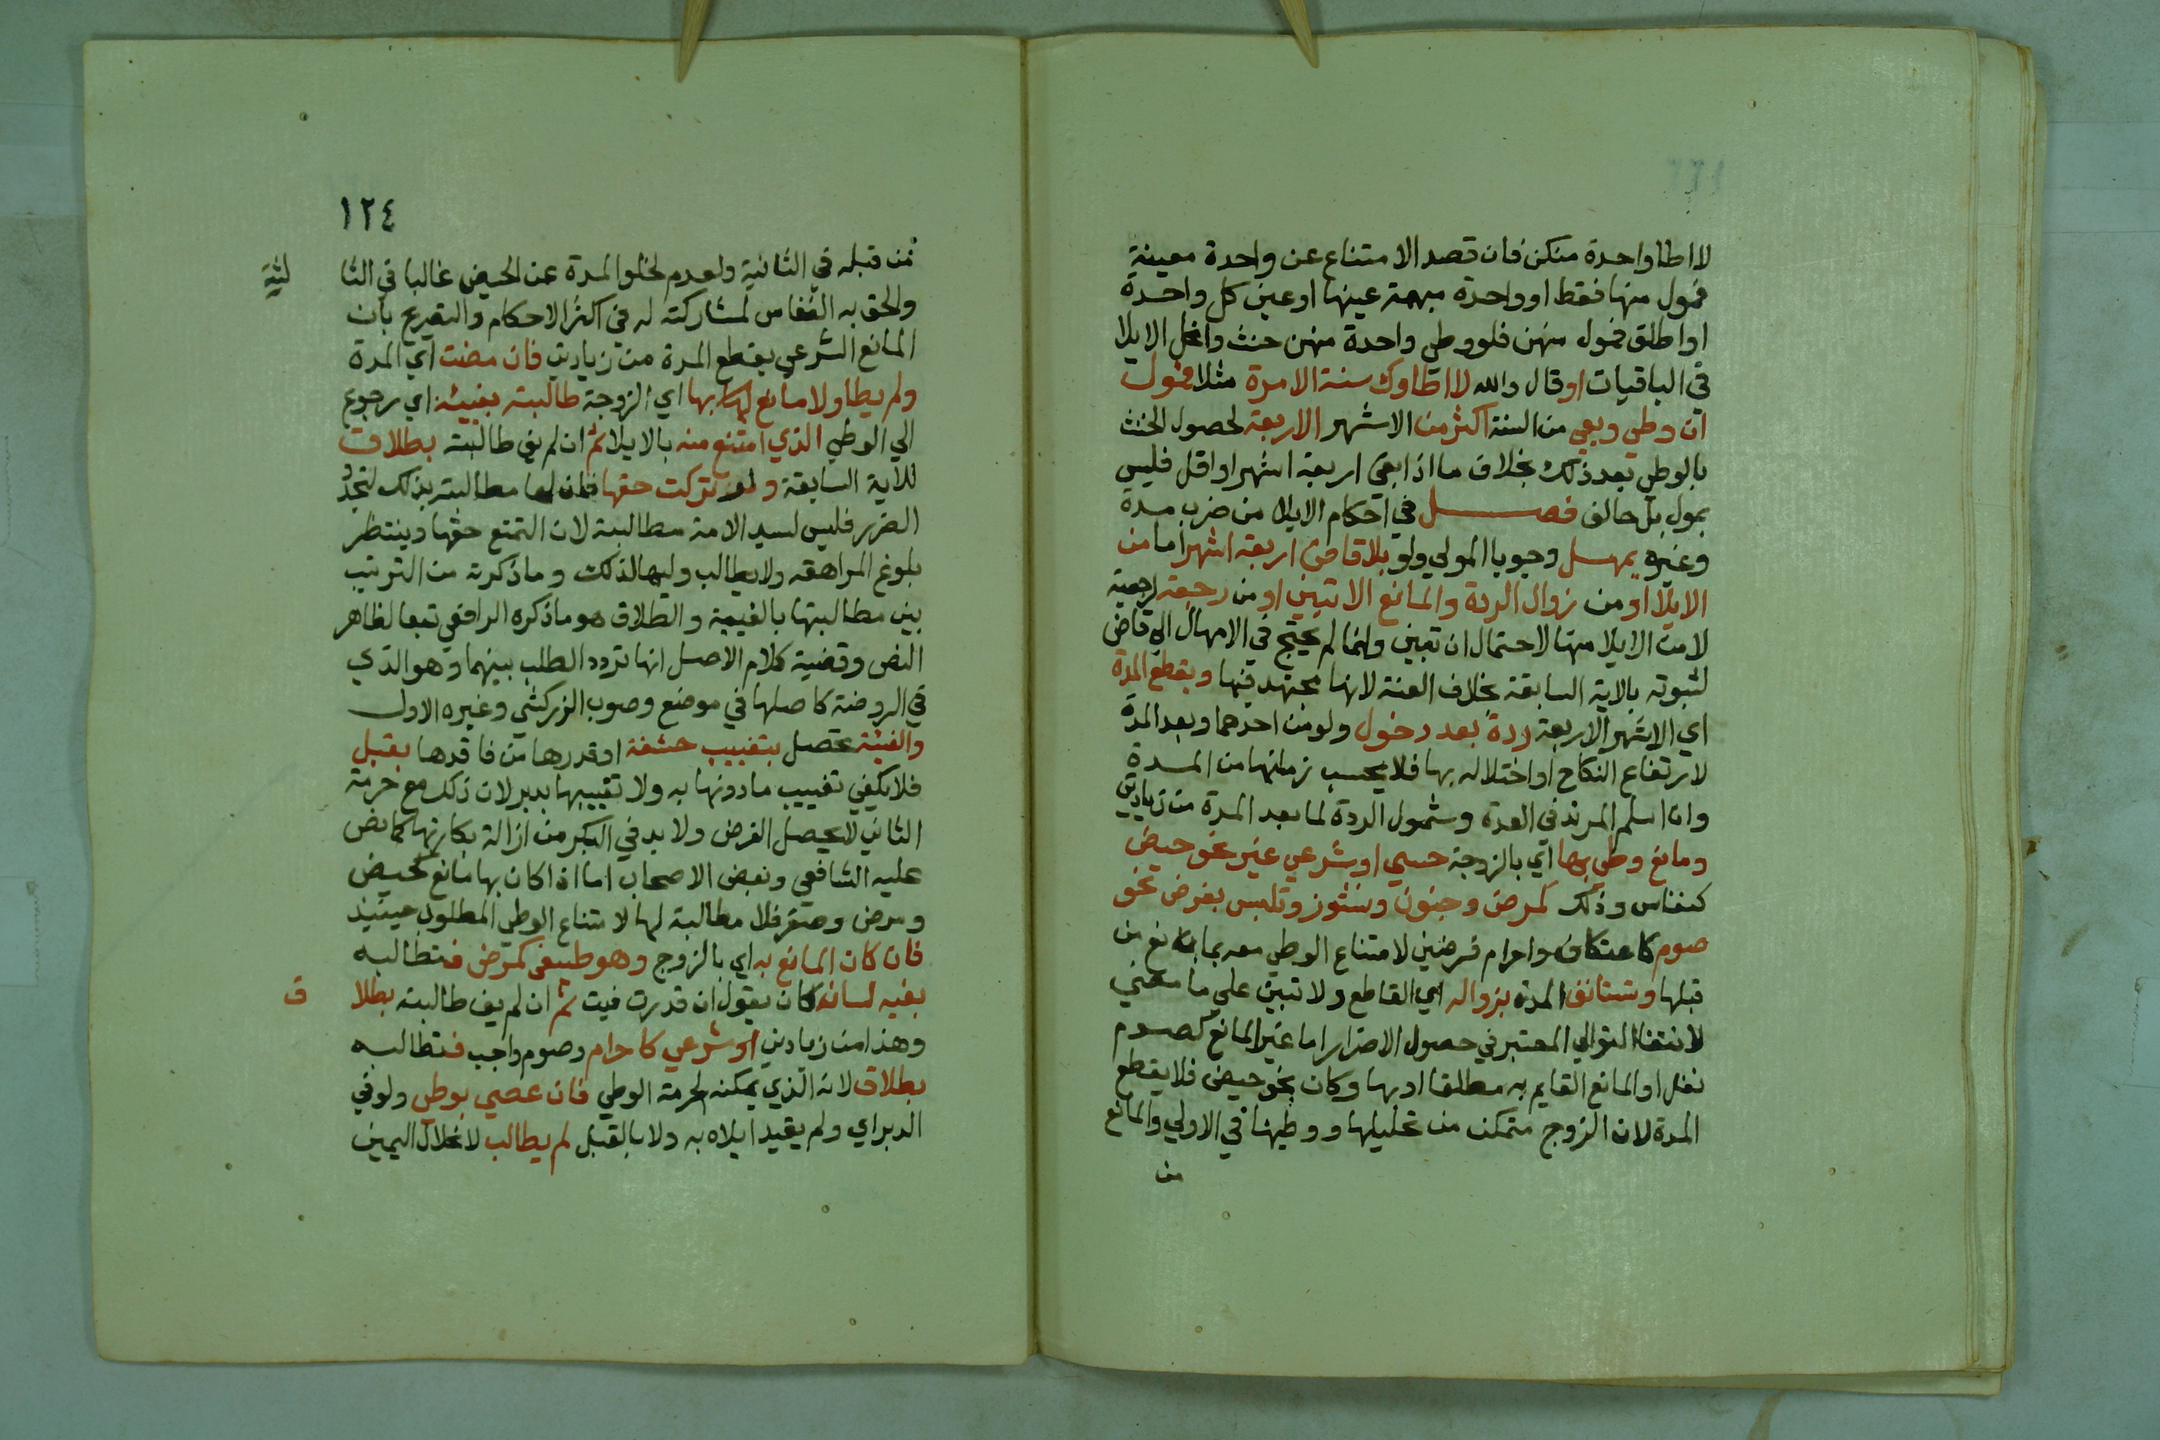 لا اطا واحدة منكن فان قصد الامتناع عن واحدة معينة
فمول منها فقط او واحدة مبهمة عينها او عين كل واحدة
او اطلق فمول منهن فلو وطي واحدة منهن حنث وانحل الايلا
في الباقيات او قال والله لا اطاوك سنة الا مرة مثلا فمول
ان وطي وبقي من السنة اكثر من الاشهر الاربعة لحصول الحنث
بالوطي بعد ذلك بخلاف ما اذا بقي اربعة اشهر او اقل فليس
بمول بل حالف فصل في احكام الايلا من ضرب مدة
وغيره يمهل وجوبا المولي ولو بلا قاض اربعة اشهر اما من
الايلا او من زوال الردة والمانع الاتيين او من رجعة رجعية
لا من الايلا منها لاحتمال ان تبين وانما لم يحتج في الامهال الي قاض
لثبوته بالاية السابقة بخلاف العنة لانها مجتهد فيها ويقطع المدة
اي الاشهر الاربعة ردة بعد دخول ولو من احدهما وبعد المدة
لارتفاع النكاح او اختلاله بها فلا يحسب زمانها من المدة
وان اسلم المرتد في العدة وشمول الردة لما بعد المدة من زيادتي
ومانع وطي بها اي بالزوجة حسي او شرعي غير نحو حيض
كنفاس وذلك كمرض وجنون ونشوز وتلبس بفرض نحو
صوم كاعتكاف واحرام فرضين لامتناع الوطي معه بمانع من
قبلها وتستانف المدة بزواله اي القاطع ولا تبين علي ما مضي
لانتفا التوالي المعتبر في حصول الاضرار اما غير المانع كصوم
نفل او المانع القايم به مطلقا او بها وكان نحو حيض فلا يقطع
المدة لان الزوج متمكن من تحليلها ووطيها في الاولي والمانع
من
١٢٤
من قبله في الثانية ولعدم لخلو المدة عن الحيض غالبا في الثا
لثة
والحق به النفاس لمشاركته له في اكثر الاحكام والتصريح بان
المانع الشرعي يقطع المدة من زيادتي فان مضت اي المدة
ولم يطا ولا مانع بها اي الزوجة طالبته بفيئة اي رجوع
الي الوطي الذي امتنع منه بالايلا ثم ان لم يفي طالبته بطلاق
للاية السابقة ولو تركت حقها فان لها مطالبته بذلك لتجدد
الضرر فليس لسيد الامة مطالبة لان التمتع حقها وينتظر
بلوغ المراهقه ولا يطالب وليها لذلك وما ذكرته من الترتيب
بين مطالبتها بالفيية والطلاق هو ما ذكره الرافعي تبعا لظاهر
النص وقضية كلام الاصل انها تردد الطلب بينهما وهو الذي
في الروضة كاصلها في موضع وصوب الزركشي وغيره الاول
والفيئة تحصل بتغييب حشفة او قدرها من فاقدها بقبل
فلا يكفي تغييب ما دونها به ولا تغييبها بدبر لان ذلك مع حرمة
الثاني لا يحصل الغرض ولا بد في البكر من ازالة بكارتها كما نص
عليه الشافعي وبعض الاصحاب اما اذا كان بها مانع كحيض
ومرض وصغر فلا مطالبة لها لامتناع الوطي المطلوب حينيذ
فان كان المانع به اي بالزوج وهو طبيعي كمرض فتطالبه
بفيه لسانه كان يقول ان قدرت فيت ثم ان لم يف طالبته بطلا
ق
وهذا من زيادتي او شرعي كاحرام وصوم واجب فتطالبه
بطلاق لانه الذي يمكنه لحرمة الوطي فان عصي بوطي ولو في
الدبر اي ولم يقيد ايلاه به ولا بالقبل لم يطالب لانحلال اليمين